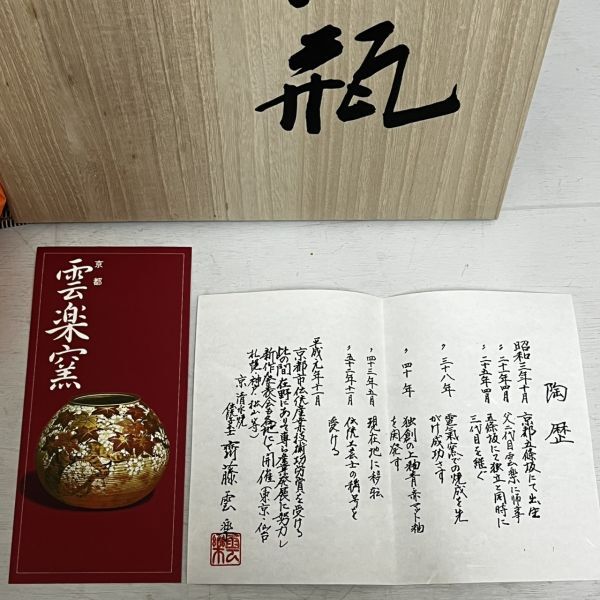 瓶
京都
雲楽窯
陶歴
昭和三年十月 京都五條坂にて出生
〃二十年四月 父二代目雲楽に師事
〃二十五年四月 五條坂にて独立と同時に
三代目を継ぐ
〃三十八年 電気窯での焼成を先
がけ成功さす
〃四十年 独創の上釉青赤マット釉
を開発す
〃四十三年五月 現在地に移転
〃五十二年二月 伝統工芸士の称号を
受ける
平成元年十一月
京都市伝統産業技術功労賞を受ける
此の間在野にありて専ら産業発展に努力し
新作発表会を各地にて開催(東京、仙台
札幌、神戸、松山等)
京 清水焼
伝統工芸士 齋藤雲楽
雲楽